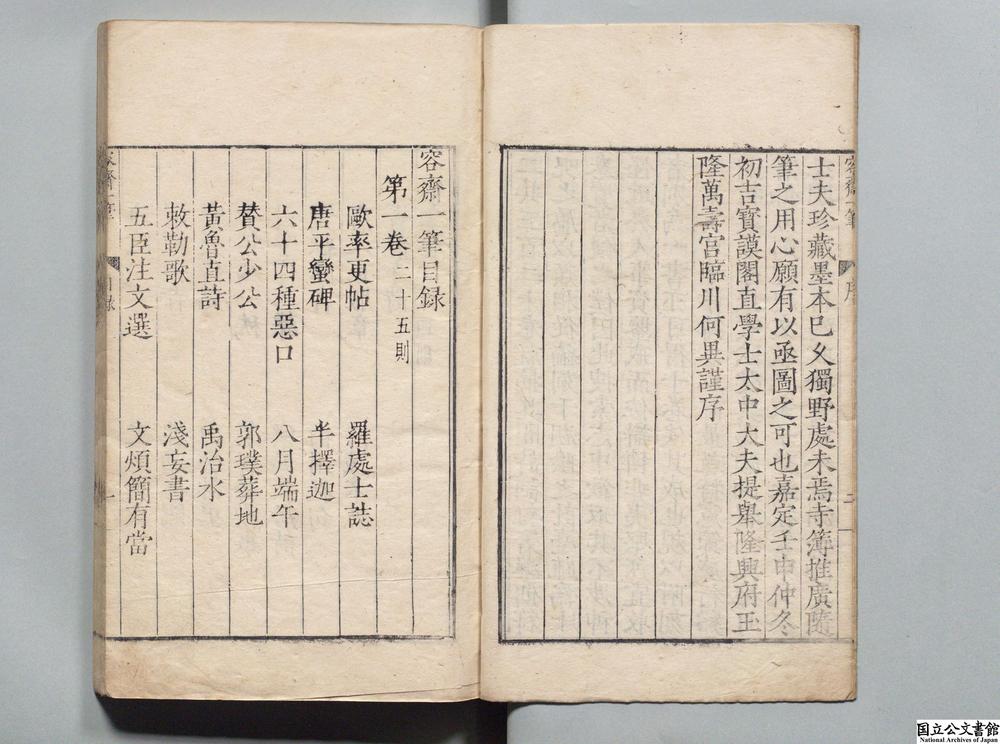 士夫珍藏墨本已久獨野處未焉寺簿推廣隨
筆之用心願有以亟圖之可也嘉定壬申仲冬
初吉寶謨閣直學士太中大夫提舉隆興府玉
隆萬壽宮臨川何異謹序
容齋一筆
序
二
容齋一筆目録
第一卷二十五則
歐率更帖 羅處士誌
唐平蠻碑 半擇迦
六十四種惡口 八月端午
賛公少公 郭璞葬地
黃魯直詩 禹治水
敕勒歌 淺妄書
五臣注文選 文煩簡有當
容齋一筆
目録
一
国立公文書館
National Archives of Japan